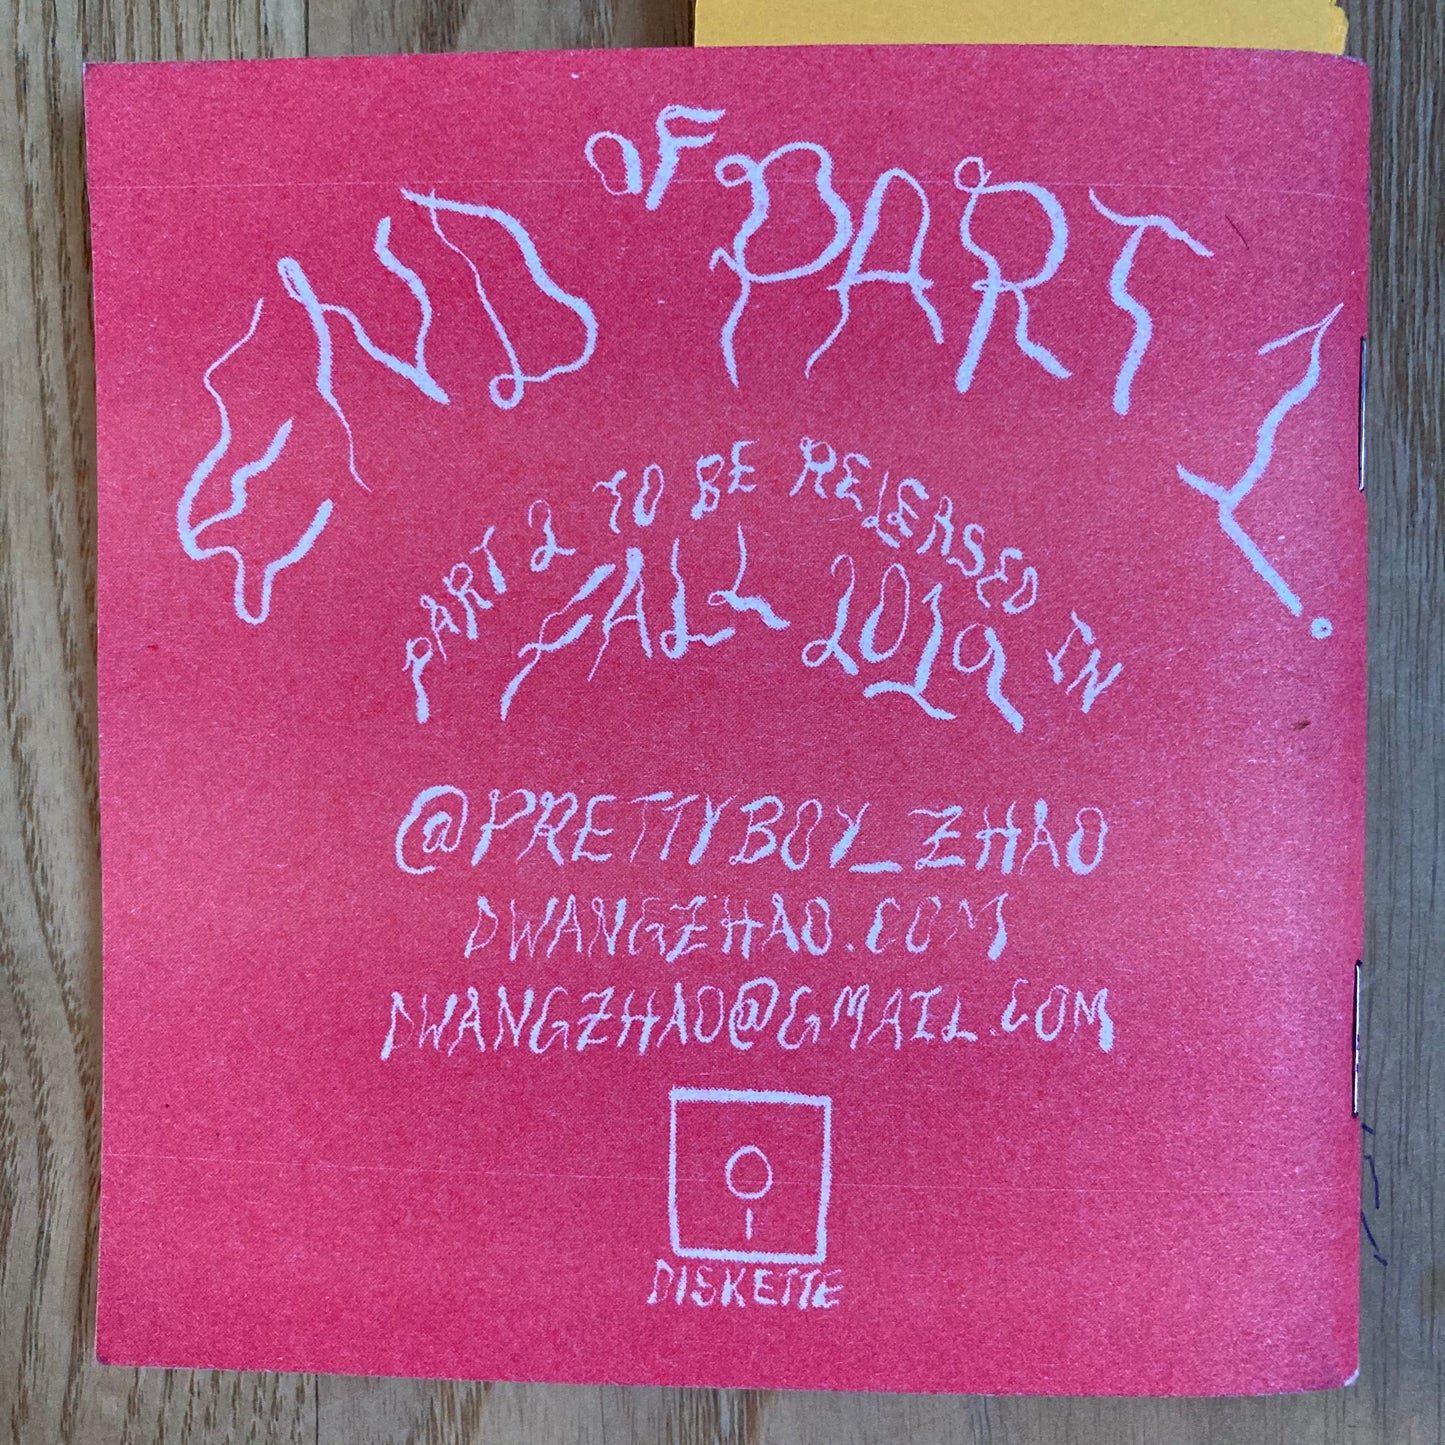 END OF PART 1.
PART 2 TO BE RELEASED IN
FALL 2019
@PRETTYBOY_ZHAO
DWANGZHAO.COM
DWANGZHAO@GMAIL.COM
DISKETTE